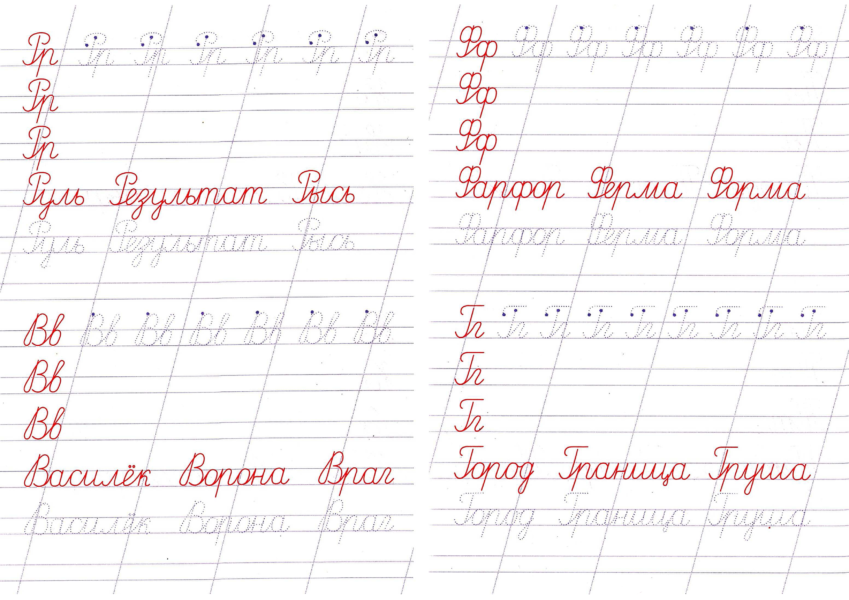 Рр Рр Рр Рр Рр Рр Рр
Рр
Рр
Руль Результат Рысь
Руль Результат Рысь
Вв Вв Вв Вв Вв Вв Вв
Вв
Вв
Василёк Ворона Враг
Василёк Ворона Враг
Фф Фф Фф Фф Фф Фф Фф
Фф
Фф
Фарфор Ферма Форма
Фарфор Ферма Форма
Гг Гг Гг Гг Гг Гг Гг Гг Гг
Гг
Гг
Город Граница Груша
Город Граница Груша